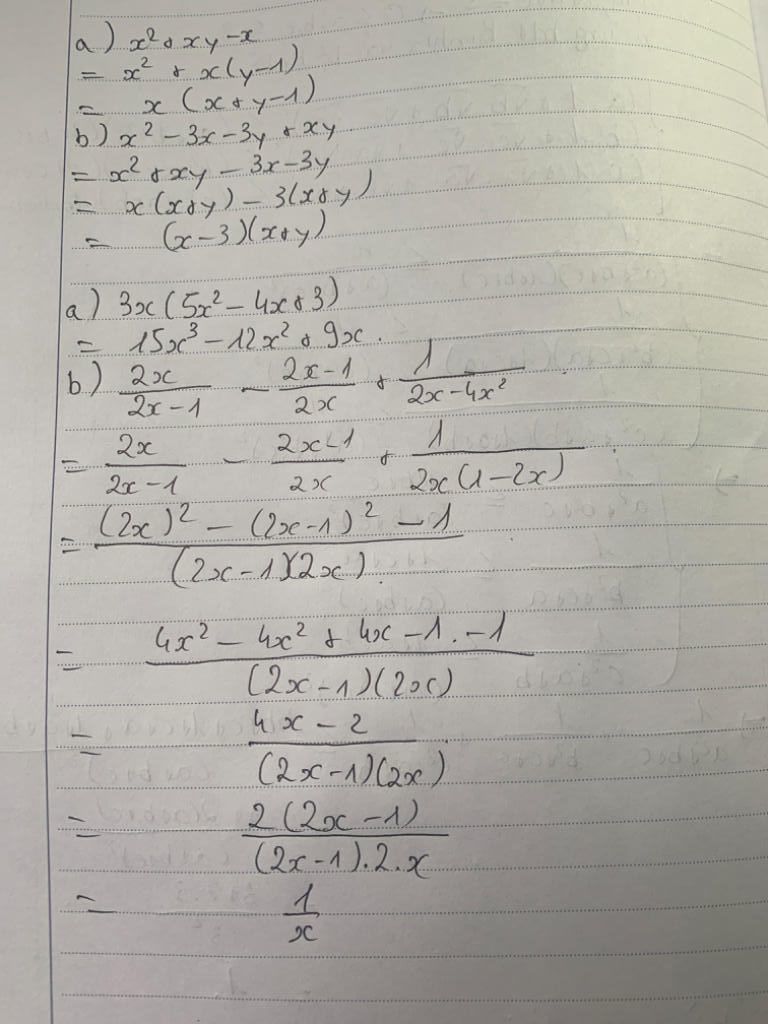 a) x² + xy - x
= x² + x(y-1)
= x (x+y-1)
b) x² - 3x - 3y + xy
= x² + xy - 3x - 3y
= x(x+y) - 3(x+y)
= (x-3)(x+y)
a) 3x(5x² - 4x + 3)
= 15x³ - 12x² + 9x.
b) 2x/(2x-1) - (2x-1)/2x + 1/(2x-4x²)
= 2x/(2x-1) - (2x-1)/2x + 1/(2x(1-2x))
= ((2x)² - (2x-1)² - 1)/((2x-1)(2x))
= (4x² - 4x² + 4x - 1 . - 1)/((2x-1)(2x))
= (4x - 2)/((2x-1)(2x))
= (2(2x-1))/((2x-1).2.x)
= 1/x